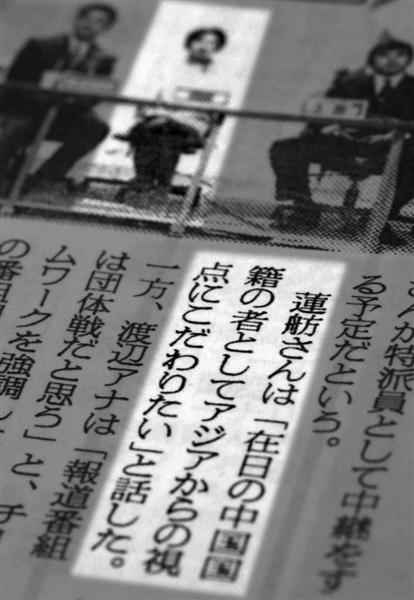 んが特派員として中継をす
る予定だという。
蓮舫さんは「在日の中国国
籍の者としてアジアからの視
点にこだわりたい」と話した。
一方、渡辺アナは「報道番組
は団体戦だと思ろ」と、チ
ームワークを強調し
の番組